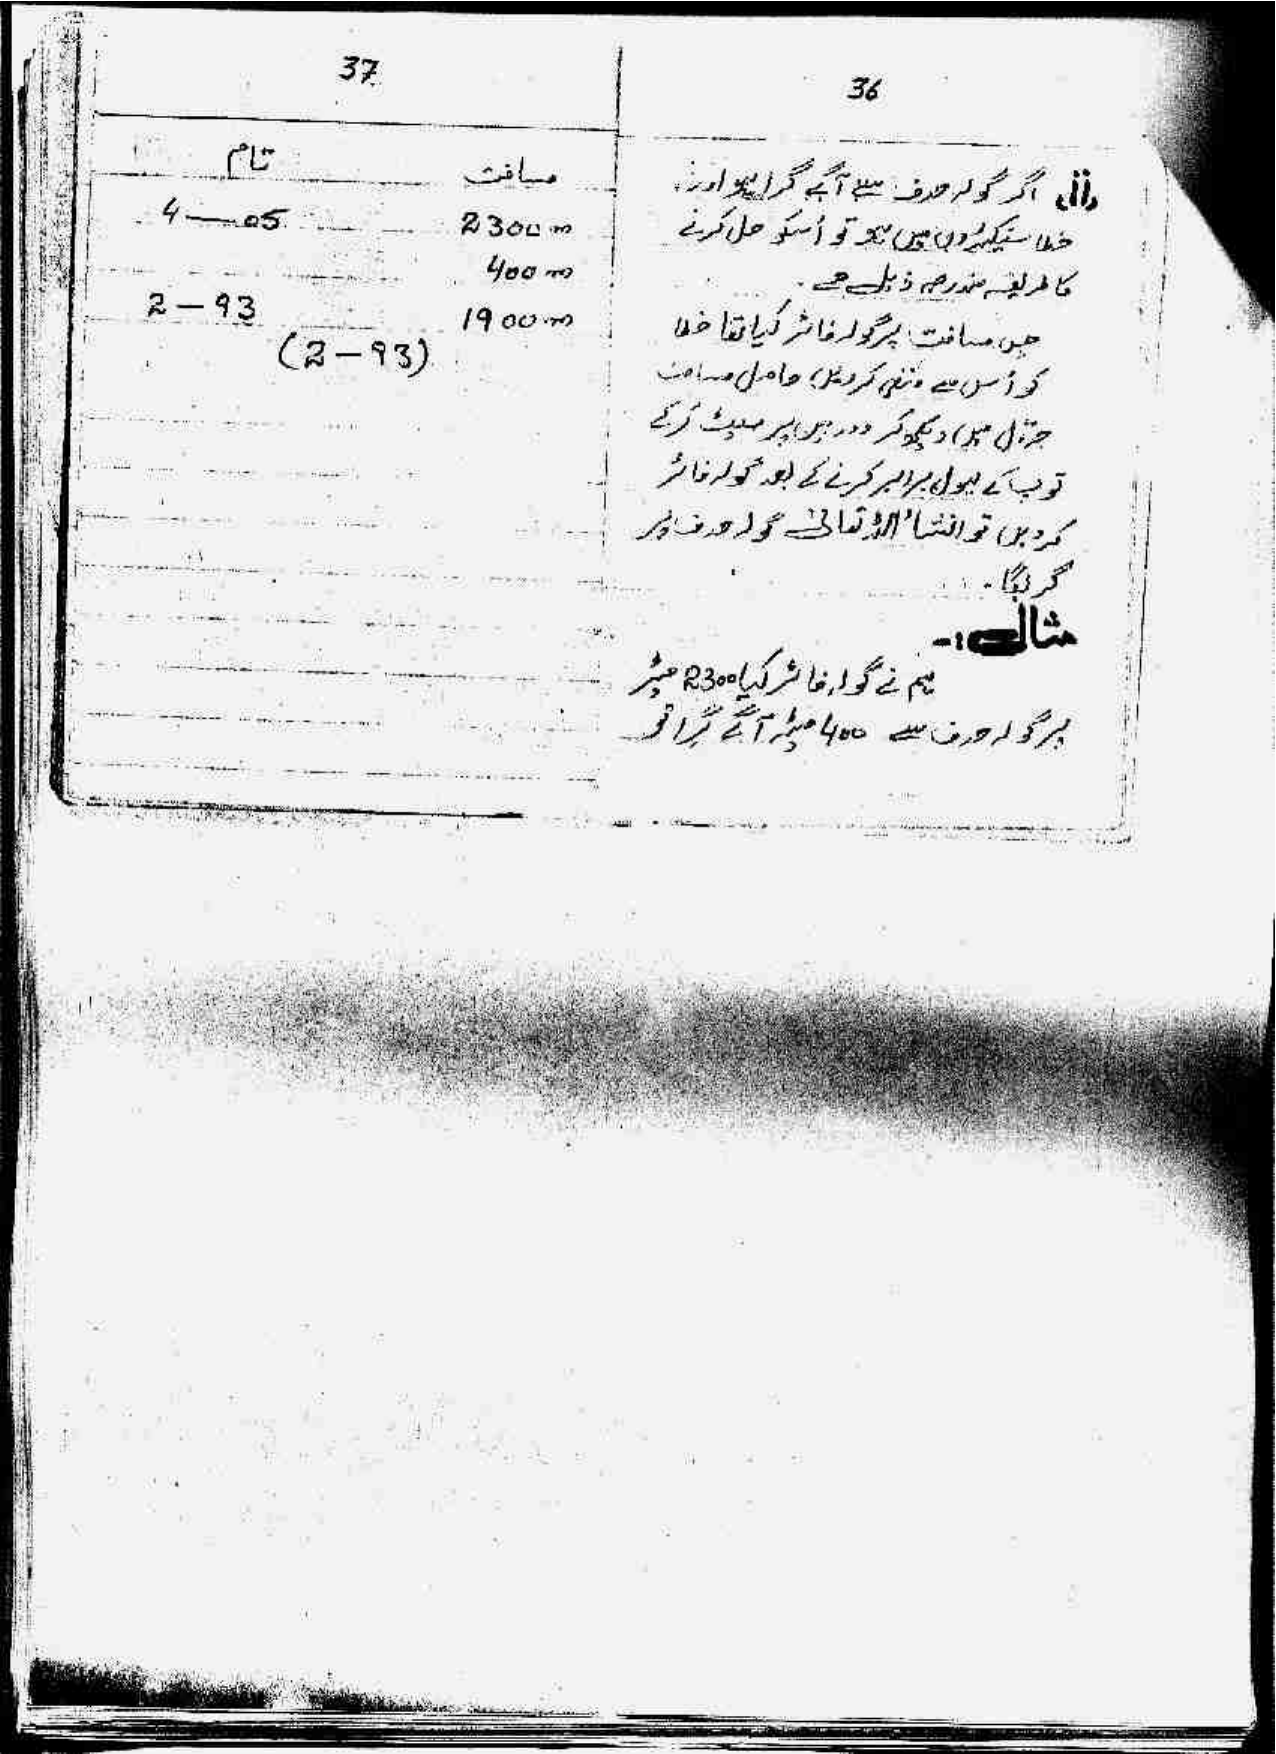 36
(ii) اگر گولہ حدف سے آگے گرا ہو اور
خطا سینکڑوں میں ہو تو اُسکو حل کرنے
کا طریقہ مندرجہ ذیل ہے۔
جس مسافت پر گولہ فائر کیا تھا خطا
کو اُس سے منفی کردیں حاصل مسافت
جدول میں دیکھ کر دوربین پر سیٹ کرکے
توپ کے لیول برابر کرنے کے بعد گولہ فائر
کردیں تو انشاءاللہ تعالیٰ گولہ حدف پر
گریگا۔
مثال :-
ہم نے گولہ فائر کیا 2300 میٹر
پر گولہ حدف سے 400 میٹر آگے گرا تو
37
مسافت تام
2300m 4—05
400m
1900m 2-93
(2-93)